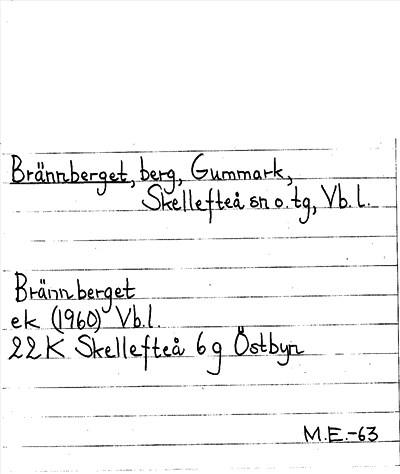 Brännberget, berg, Gummark,
Skellefteå sn o. tg, Vb. l.
Brännberget
ek (1960) Vb.l.
22K Skellefteå 6g Östbyn
M.E.-63